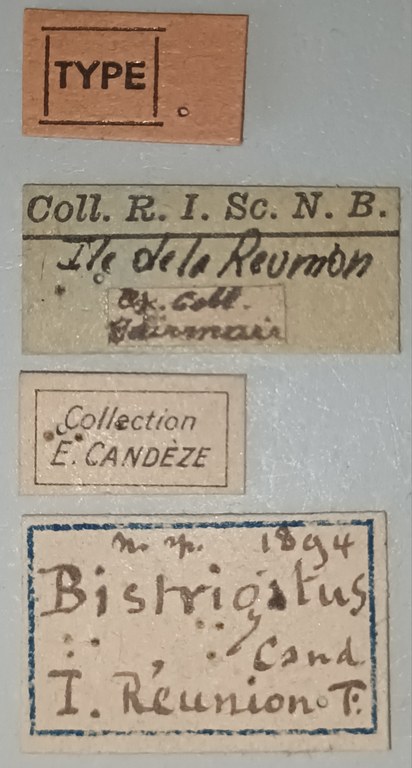 TYPE
Coll. R. I. Sc. N. B.
Ile de la Reunion
ex. Coll.
Fairmaire
Collection
E. CANDÈZE
n. sp. 1894
Bistrigatus
Cand
I. Réunion. F.